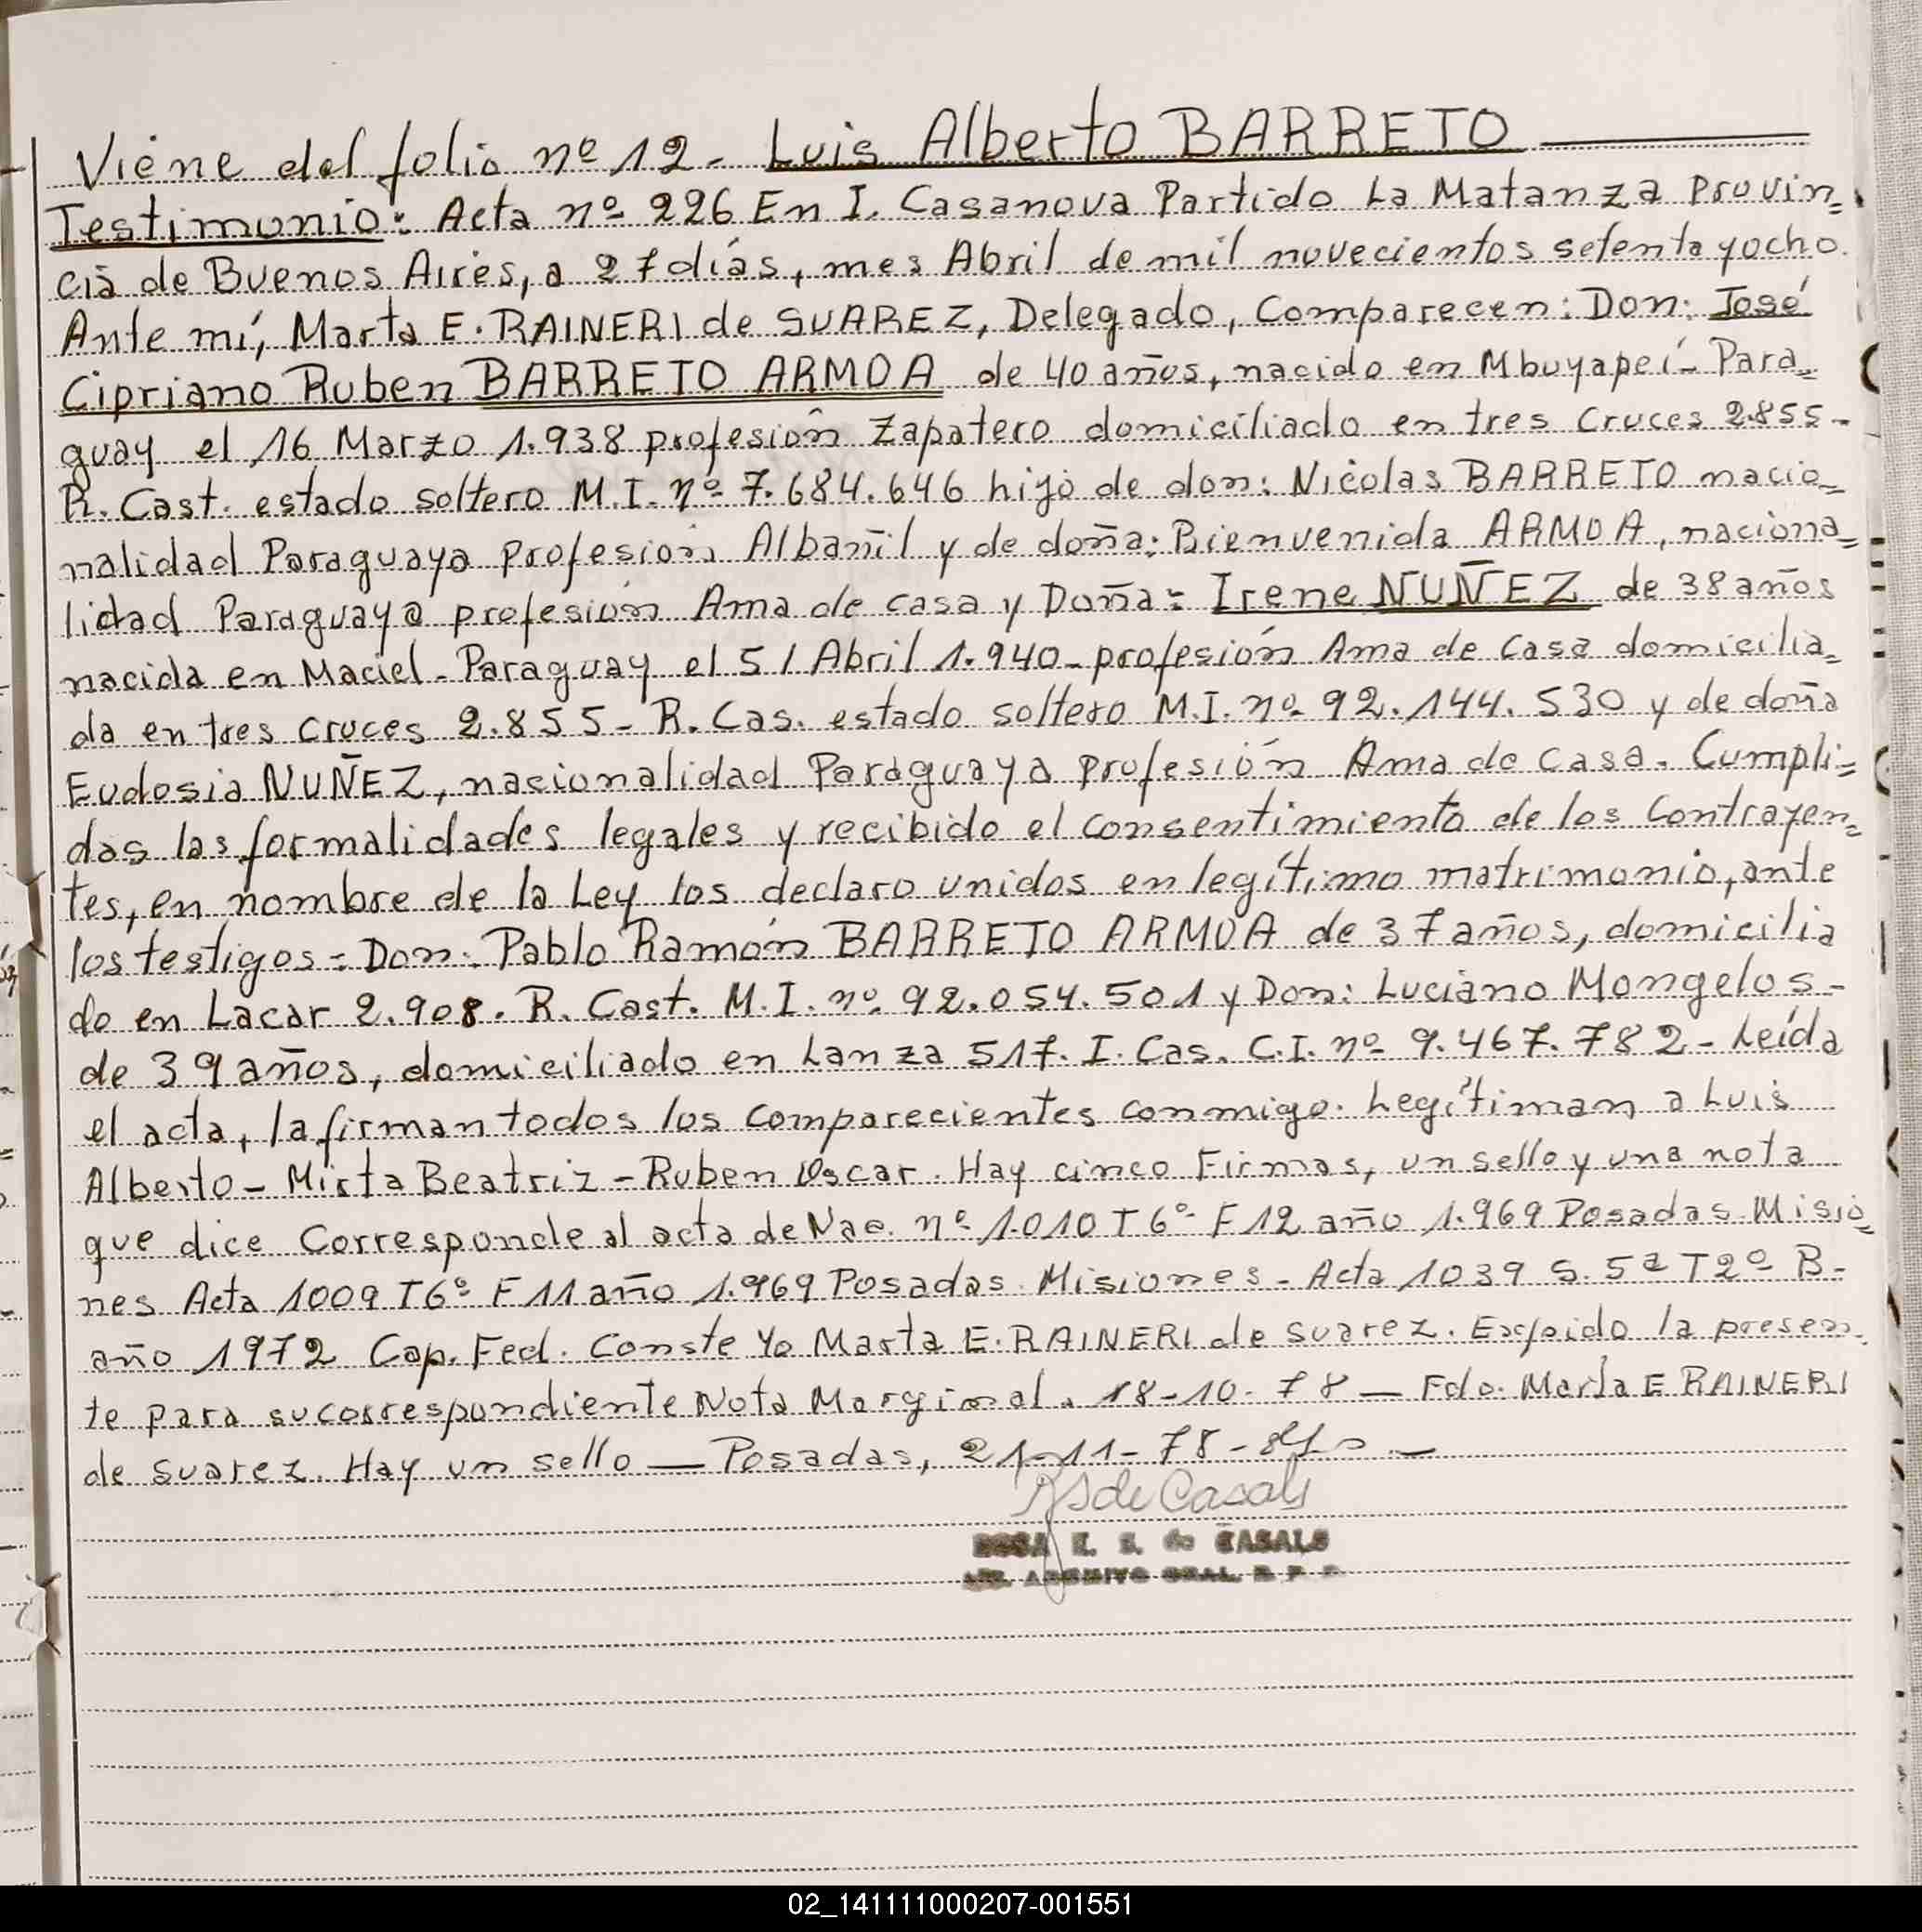 Viene del folio nº 12 - Luis Alberto BARRETO
Testimonio: Acta nº 226 En I. Casanova Partido La Matanza Provin=
cia de Buenos Aires, a 27 días, mes Abril de mil novecientos setenta y ocho.
Ante mí, Marta E. RAINERI de SUAREZ, Delegado, Comparecen: Don: José
Cipriano Ruben BARRETO ARMOA de 40 años, nacido en Mbuyapeí - Para=
guay el 16 Marzo 1.938 profesión Zapatero domiciliado en tres Cruces 2.855 -
R. Cast. estado soltero M.I. nº 7.684.646 hijo de don: Nicolas BARRETO nacio=
nalidad Paraguaya profesión Albañil y de doña: Bienvenida ARMOA, naciona=
lidad Paraguaya profesión Ama de casa y Doña: Irene NUÑEZ de 38 años
nacida en Maciel - Paraguay el 5 / Abril 1.940 - profesión Ama de Casa domicilia=
da en tres cruces 2.855 - R. Cas. estado soltero M.I. nº 92.144.530 y de doña
Eudosia NUÑEZ, nacionalidad Paraguaya profesión Ama de casa. Cumpli=
das las formalidades legales y recibido el consentimiento de los Contrayen=
tes, en nombre de la Ley los declaro unidos en legítimo matrimonio, ante
los testigos: Don: Pablo Ramón BARRETO ARMOA de 37 años, domicilia
do en Lacar 2.908. R. Cast. M.I. nº 92.054.501 y Don: Luciano Mongelos -
de 39 años, domiciliado en Lanza 517. I. Cas. C.I. nº 9.467.782 - Leída
el acta, la firman todos los comparecientes conmigo. Legítiman a Luis
Alberto - Mirta Beatriz - Ruben Oscar. Hay cinco Firmas, un sello y una nota
que dice Corresponde al acta de Nac. nº 1.010 T 6º F 12 año 1.969 Posadas. Misio=
nes Acta 1009 T 6º F 11 año 1.969 Posadas. Misiones - Acta 1039 S. 5ª T 2º B -
año 1972 Cap. Fed. Conste Yo Marta E. RAINERI de Suarez. Expido la presen
te para su correspondiente Nota Marginal. 18-10-78 — Fdo. Marta E RAINERI
de Suarez. Hay un sello — Posadas, 21-11-78 -
RS de Casals
ROSA E. S. de CASALS
ARCHIVO GRAL. R. P. P.
02_141111000207-001551